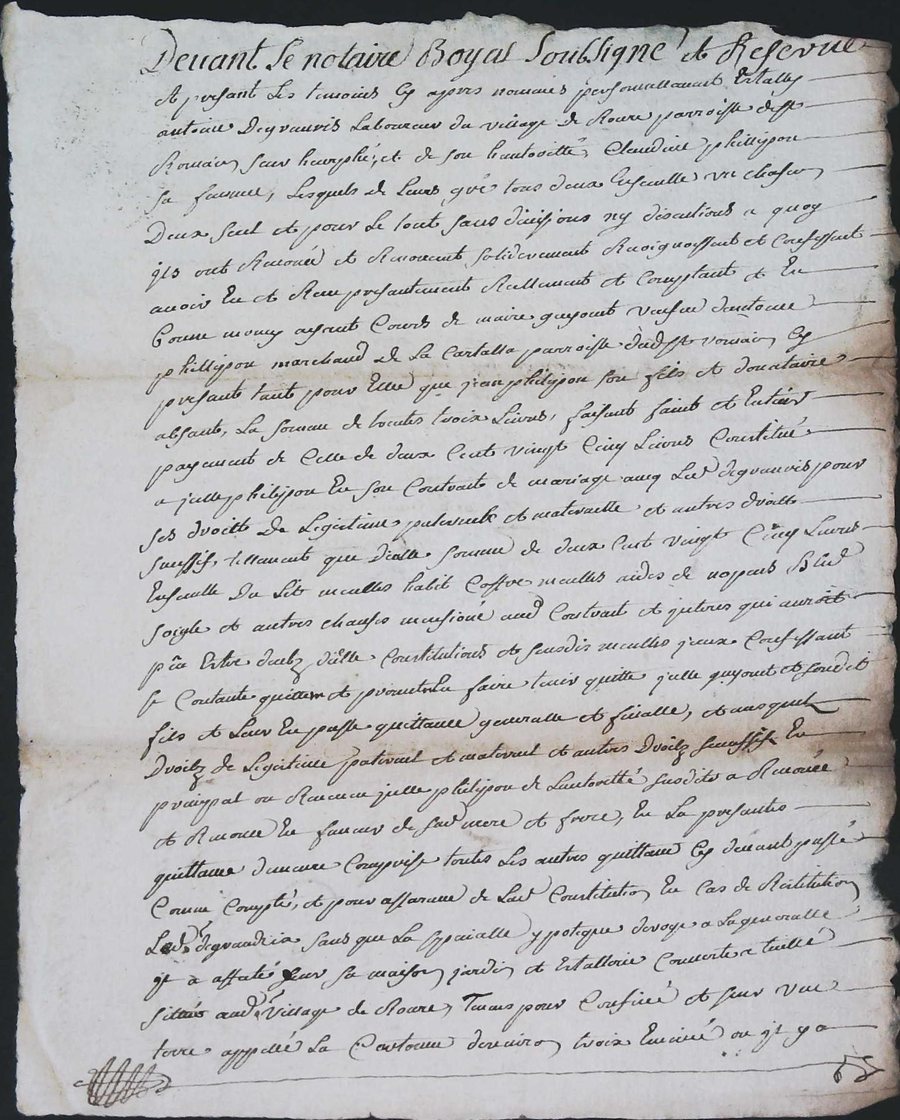 Devant Le notaire Boyat Soubsigné et Reservé
Et presant Les temoins Cy apres nommés personnellement Estably
antoine Degrauvis Laboureur du village de Roure parroisse de st
Romain, et de son hautorité, Claudine phillipon
sa femme, Lesquels de Leurs gré tous deux Ensemble un chascun
Deux seul et pour Le tout sans divisions ny discutions a quoy
ils ont Renoncé et Renoncent solidairement Recognoissent et Confessent
avoir Eu et Receu presantement Reellement et Comptant et En
bonne monoy ayant Cours de marie guyont vaisve dantoine
phillipon marchand de La Cartalla parroisse dud st romain Cy
presante tant pour Elle que jean philipon son fils et donataire
absant, La somme de trente troix Livres, faisant faint et Entier
payement de Celle de deux Cent vingt Cinq Livres Constitué
a jcelle philipon En son Contrait de mariage avec Led degrauvis pour
ses droitt de Legitime paternelle et maternelle et autres droitt
sucessif, tellement que dicelle somme de deux Cent vingt Cinq Livres
Ensemble du Lit meubles habit Coffre meubles aides de nopces Bled
soigle et autres chauses mensioné aud Contrait et jnteres qui auroit
peu Estre deubz dicelle Constitutions et susdis meubles jceux Confessant
se Contante quittent et promettre En faire tenir quitte jcelle guyont et sondit
fils et Leur En passe quittance generalle et finalle, et
Droitz de Legitime paternel et maternel et autres Droitz sucessifs En
prinsipal ou jcelle philipon de Lautorité susdite a Renoncé
et Renonce En faveur de sad mere et frere, En La presante
quittance demeure Comprise toutes Les autres quittance Cy devant passé
Comme Compté, et pour assurance de Lad Constitution En Cas de Restitution
Led. sans que La speciallle ypoteque deroge a Lageneralle
jl a affaté sur sa maison jardin et Estallerie Couverte a tuille
situés aud village de Roure, Tenus pour Confiné et sur une
terre appellé La Cartonne denviron troix Eminée ou jl y a